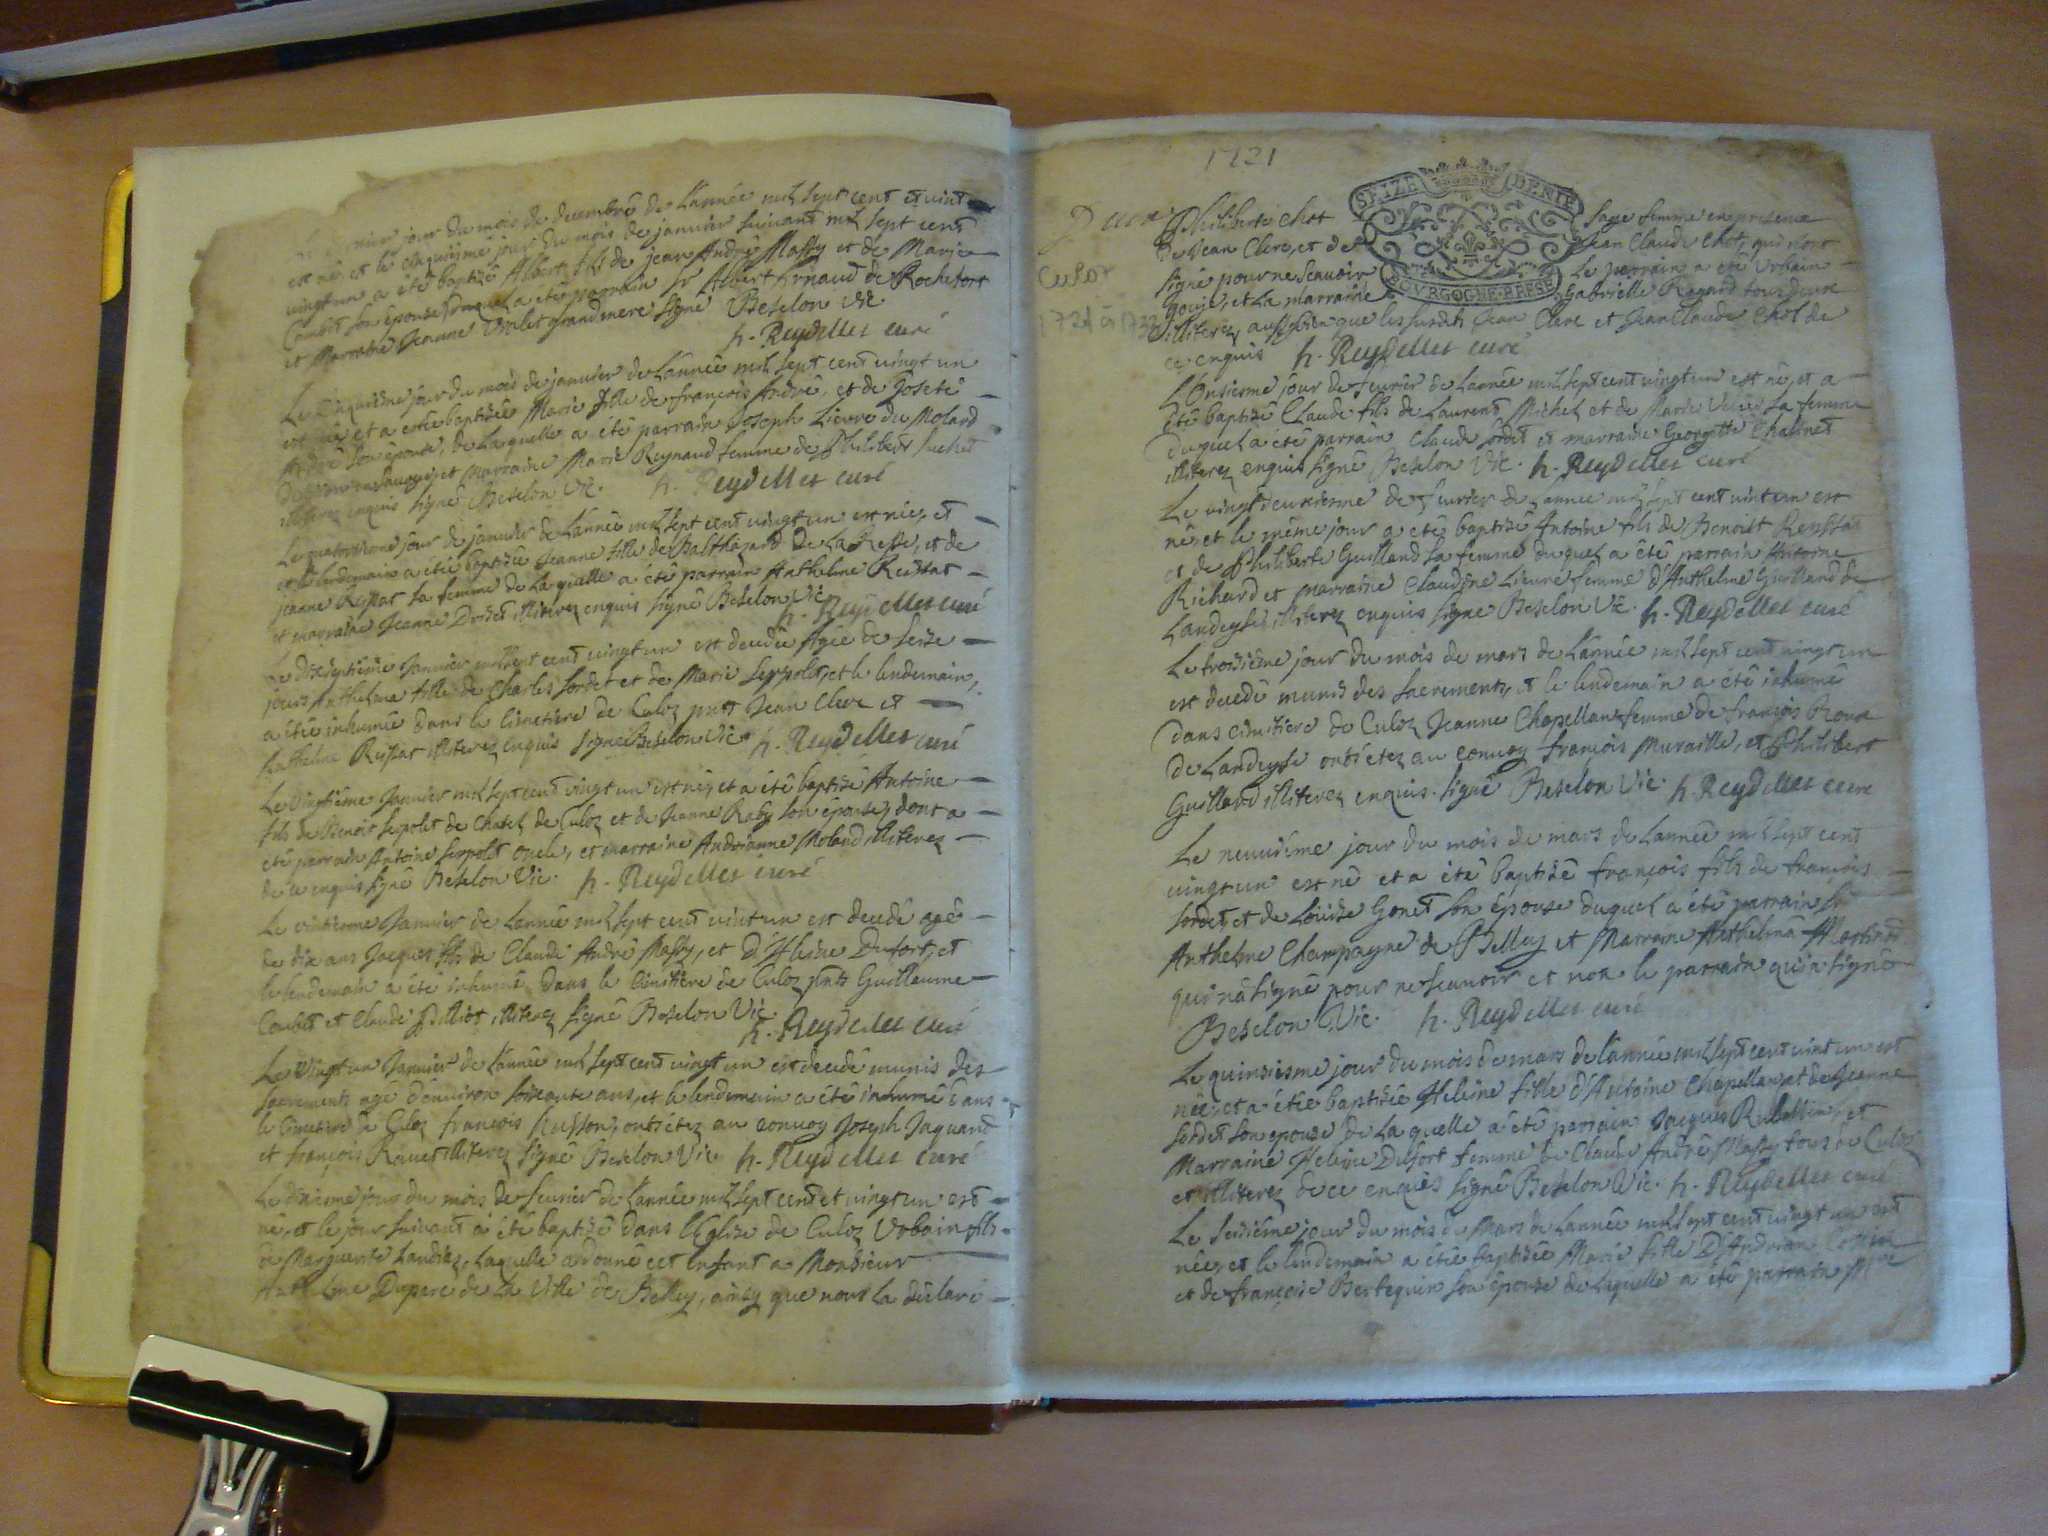 jour du mois de decembre de l'année mil sept cent et vint
est né et le cinquiéme jour du mois de janvier suivant mil sept cent
vingt un a été baptisé Albert fils de Jean André Massy et de Marie
son épouse duquel a été parrain Sr Albert Arnaud de Rochefort
et Marraine Jeanne grandmere signé Beselon Vic.
h. Reydellet curé
Le cinquiéme jour du mois de janvier de l'année mil sept cent vingt un
est née et a estée baptisée Marie fille de françois André, et de
André son épouse, de Laquelle a été parrain Joseph Lievre du Molard
et marraine Marie Reynaud femme de Philibert
illiterez enquis signé Beselon Vic. h. Reydellet curé
Le quatorzieme jour de janvier de l'année mil sept cent vingt un est née, et
et le lendemain a étée baptisée Jeanne fille de Balthazard De La et de
Jeanne sa femme de laquelle a été parrain Anthelme
et marraine Jeanne illiterez enquis signé Beselon Vic.
h. Reydellet curé
Le dixseptiéme Janvier mil sept cent vingt un est decedée Agée de seise
jours Anthelme fille de Charles Sordet et de Marie Serpolet, et le lendemain,
a étée inhumée dans le Cimetiere de Culoz pnts Jean Clerc et
Anthelme illiterez enquis signé Beselon Vic. h. Reydellet curé
Le vingtiéme Janvier mil sept cent vingt un est né, et a été baptisé Antoine
fils de Benoit Serpolet de Chatel de Culoz et de Jeanne Raby son épouse, dont a
été parrain Antoine Serpolet oncle, et marraine Andrianne Moland illiterez
de ce enquis signé Beselon Vic. h. Reydellet curé
Le vintieme Janvier de l'année mil sept cent vint un est decedé agé
de dix ans Jacques fils de Claude André Massy, et d'Heleine Dufort, et
le lendemain a été inhumé dans le Cimitiére de Culoz pnts Guillaume
et Claude Billiot illiterez signé Beselon Vic.
h. Reydellet curé
Le Vingt un Janvier de l'année mil sept cent vingt un est decedé munis des
sacrements agé d'environ soixante ans, et le lendemain a été inhumé dans
le Cimetiere de Culoz françois ont étez au convoy Joseph Jaquand
et françois Ravet illiterez signé Beselon Vic. h. Reydellet curé
Le dixieme jour du mois de fevrier de l'année mil sept cent et vingt un est
né, et le jour suivant a été baptisé dans l'Eglise de Culoz Urbain fils
de Marguerite Laquelle a donné cet enfant a Monsieur
Anthelme Duparc de la Ville de Belley, ainsy que nous l'a déclaré
1721
Culoz
1721 à 173
SEIZE DENIE
BOVRGOGNE-BRESE
Philiberte Chot sage femme en presence
de Jean Clerc, et de Jean Claude Chot, qui n'ont
signé pour ne scavoir Le parrain a été Urbain
et la marraine Gabrielle tous deux
illiterez, aussy bien que les susdits Jean Clerc et Jean Claude Chot de
ce enquis h. Reydellet curé
L'Onsiesme jour de fevrier de l'année mil sept cent vingt un est né, et a
été baptisé Claude fils de Laurent Michel et de Marie sa femme
Duquel a été parrain Claude Sordet et marraine Georgette
illiterez enquis signé Beselon Vic. h. Reydellet curé
Le vingt deuxiesme de fevrier de l'année mil sept cent vint un est
né, et le même jour a été baptisé Antoine fils de Benoist
et de Philiberte Guilland sa femme duquel a été parrain Antoine
Richard et marraine Claudine Lievre femme d'Anthelme Guilland de
Landeyse illiterez enquis signé Beselon Vic. h. Reydellet curé
Le troisiéme jour du mois de mars de l'année mil sept cent vingt un
est decedé munis des sacrements, et le lendemain a été inhumé
dans cimitiere de Culoz Jeanne Chapellan femme de françois
de Landeyse ont étez au convoy françois Muraille, et Philibert
Guilland illiterez enquis. signé Beselon Vic h. Reydellet curé
Le neuviéme jour du mois de mars de l'année mil sept cent
vingt un est né et a été baptisé françois fils de françois
Sordet, et de Louise Gonet son épouse duquel a été parrain Sr
Anthelme Champagne de Belley et Marraine Anthelma
qui n'a signé pour ne scavoir et non le parrain qui a signé
Beselon Vic. h. Reydellet curé
Le quinziesme jour du mois de mars de l'année mil sept cent vint un est
née, et a étée baptisée Heleine fille d'Antoine Chapellan, et de Jeanne
Sordet son epouse de laquelle a été parrain Jacques et
Marraine Heleine Dufort femme de Claude André Massy tous de Culoz
et illiterez de ce enquis signé Beselon Vic. h. Reydellet curé
Le seiziéme jour du mois de Mars de l'année mil sept cent vingt un est
née, et le lendemain a étée baptisée Marie fille D'Andrian
et de françoise Bertequin son épouse de laquelle a été parrain Mre